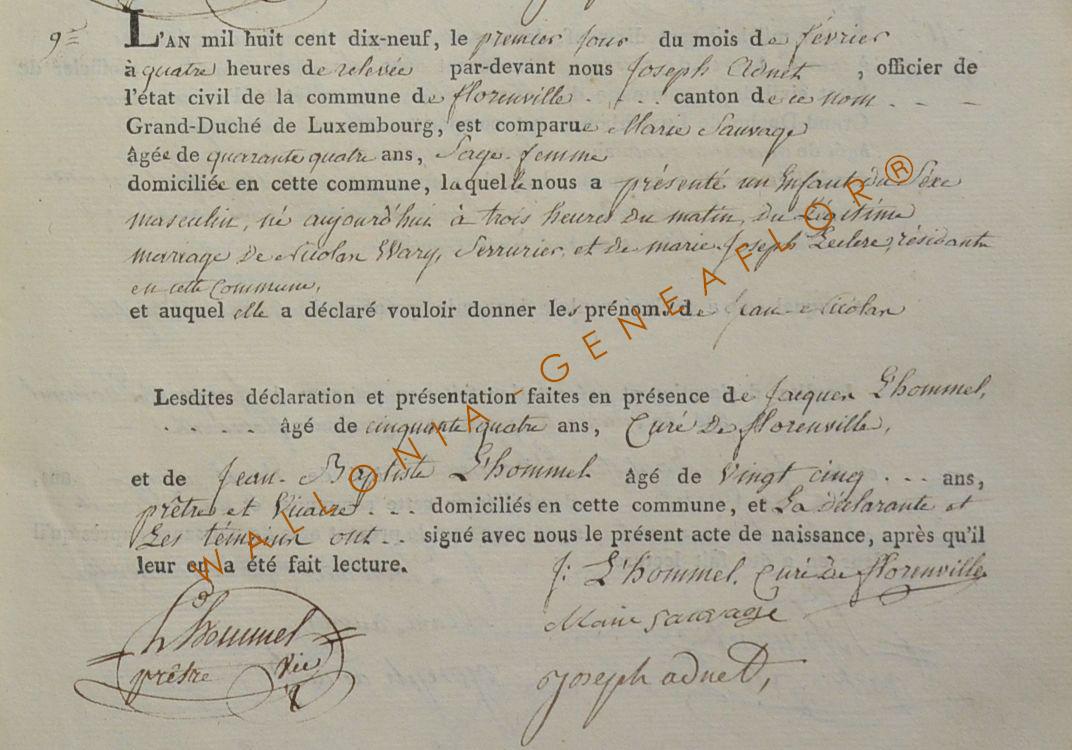 9e
L'AN mil huit cent dix-neuf, le premier jour du mois de février
à quatre heures de relevée par-devant nous Joseph Adnet , officier de
l'état civil de la commune de florenville . . . . canton de ce nom . - -
Grand-Duché de Luxembourg, est comparue Marie Sauvage
âgée de quarante quatre ans, Sage-femme
domiciliée en cette commune, laquelle nous a présenté un Enfant du Séxe
masculin, né aujourd'hui à trois heures du matin, du Légitime
mariage de Nicolas Wary, Serrurier, et de marie-Joseph Leclere, résidante
en cette Commune,
et auquel elle a déclaré vouloir donner les prénoms de Jean-Nicolas
Lesdites déclaration et présentation faites en présence de Jacques L'hommel,
. . . . . âgé de cinquante quatre ans, Curé de florenville,
et de Jean-Baptiste L'hommel âgé de vingt cinq . . . ans,
prêtre et Vicaire . . . domiciliés en cette commune, et La déclarante et
Les témoins ont . . signé avec nous le présent acte de naissance, après qu'il
leur en a été fait lecture.
J: L'hommel, Curé de florenville
Marie sauvage
L'hommel
prêtre Vic
Joseph adnet,
WALLONIA - GENEAFLOR®